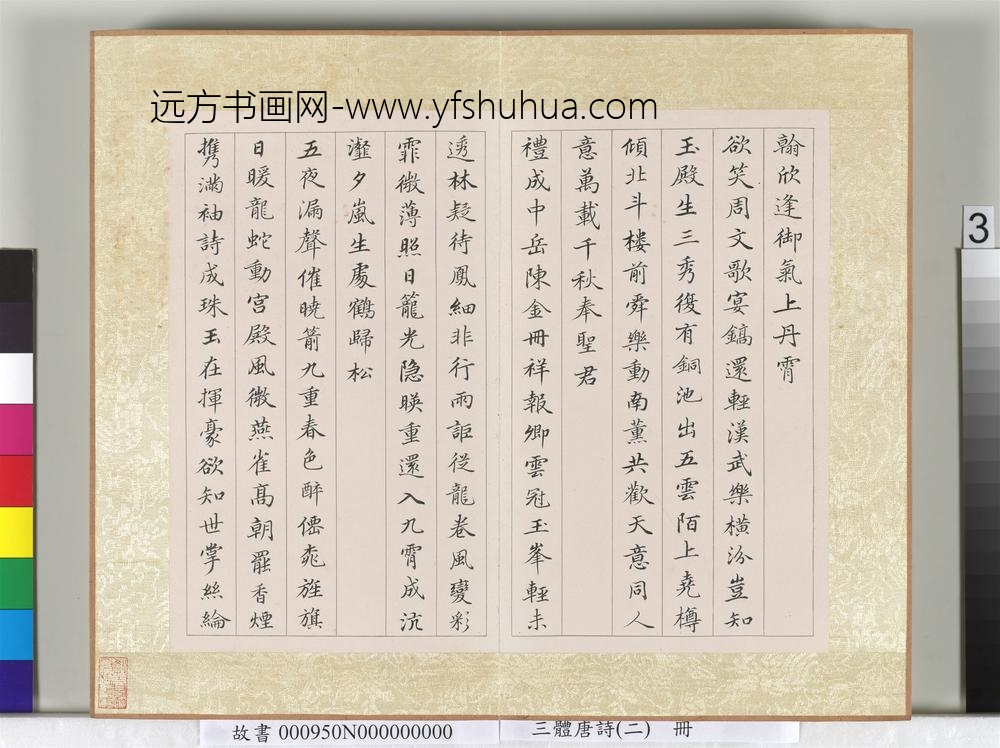 远方书画网-www.yfshuhua.com
翰欣逢御氣上丹霄
欲笑周文歌宴鎬還輕漢武樂橫汾豈知
玉殿生三秀復有銅池出五雲陌上堯樽
傾北斗樓前舜樂動南薰共歡天意同人
意萬載千秋奉聖君
禮成中岳陳金冊祥報卿雲冠玉峯輕未
透林疑待鳳細非行雨詎從龍卷風變彩
霏微薄照日籠光隐暎重還入九霄成沆
瀣夕嵐生處鶴歸松
五夜漏聲催曉箭九重春色醉僊桃旌旗
日暖龍蛇動宮殿風微燕雀高朝罷香煙
攜滿袖詩成珠玉在揮豪欲知世掌絲綸
3
故書 000950N000000000
三體唐詩(二) 冊